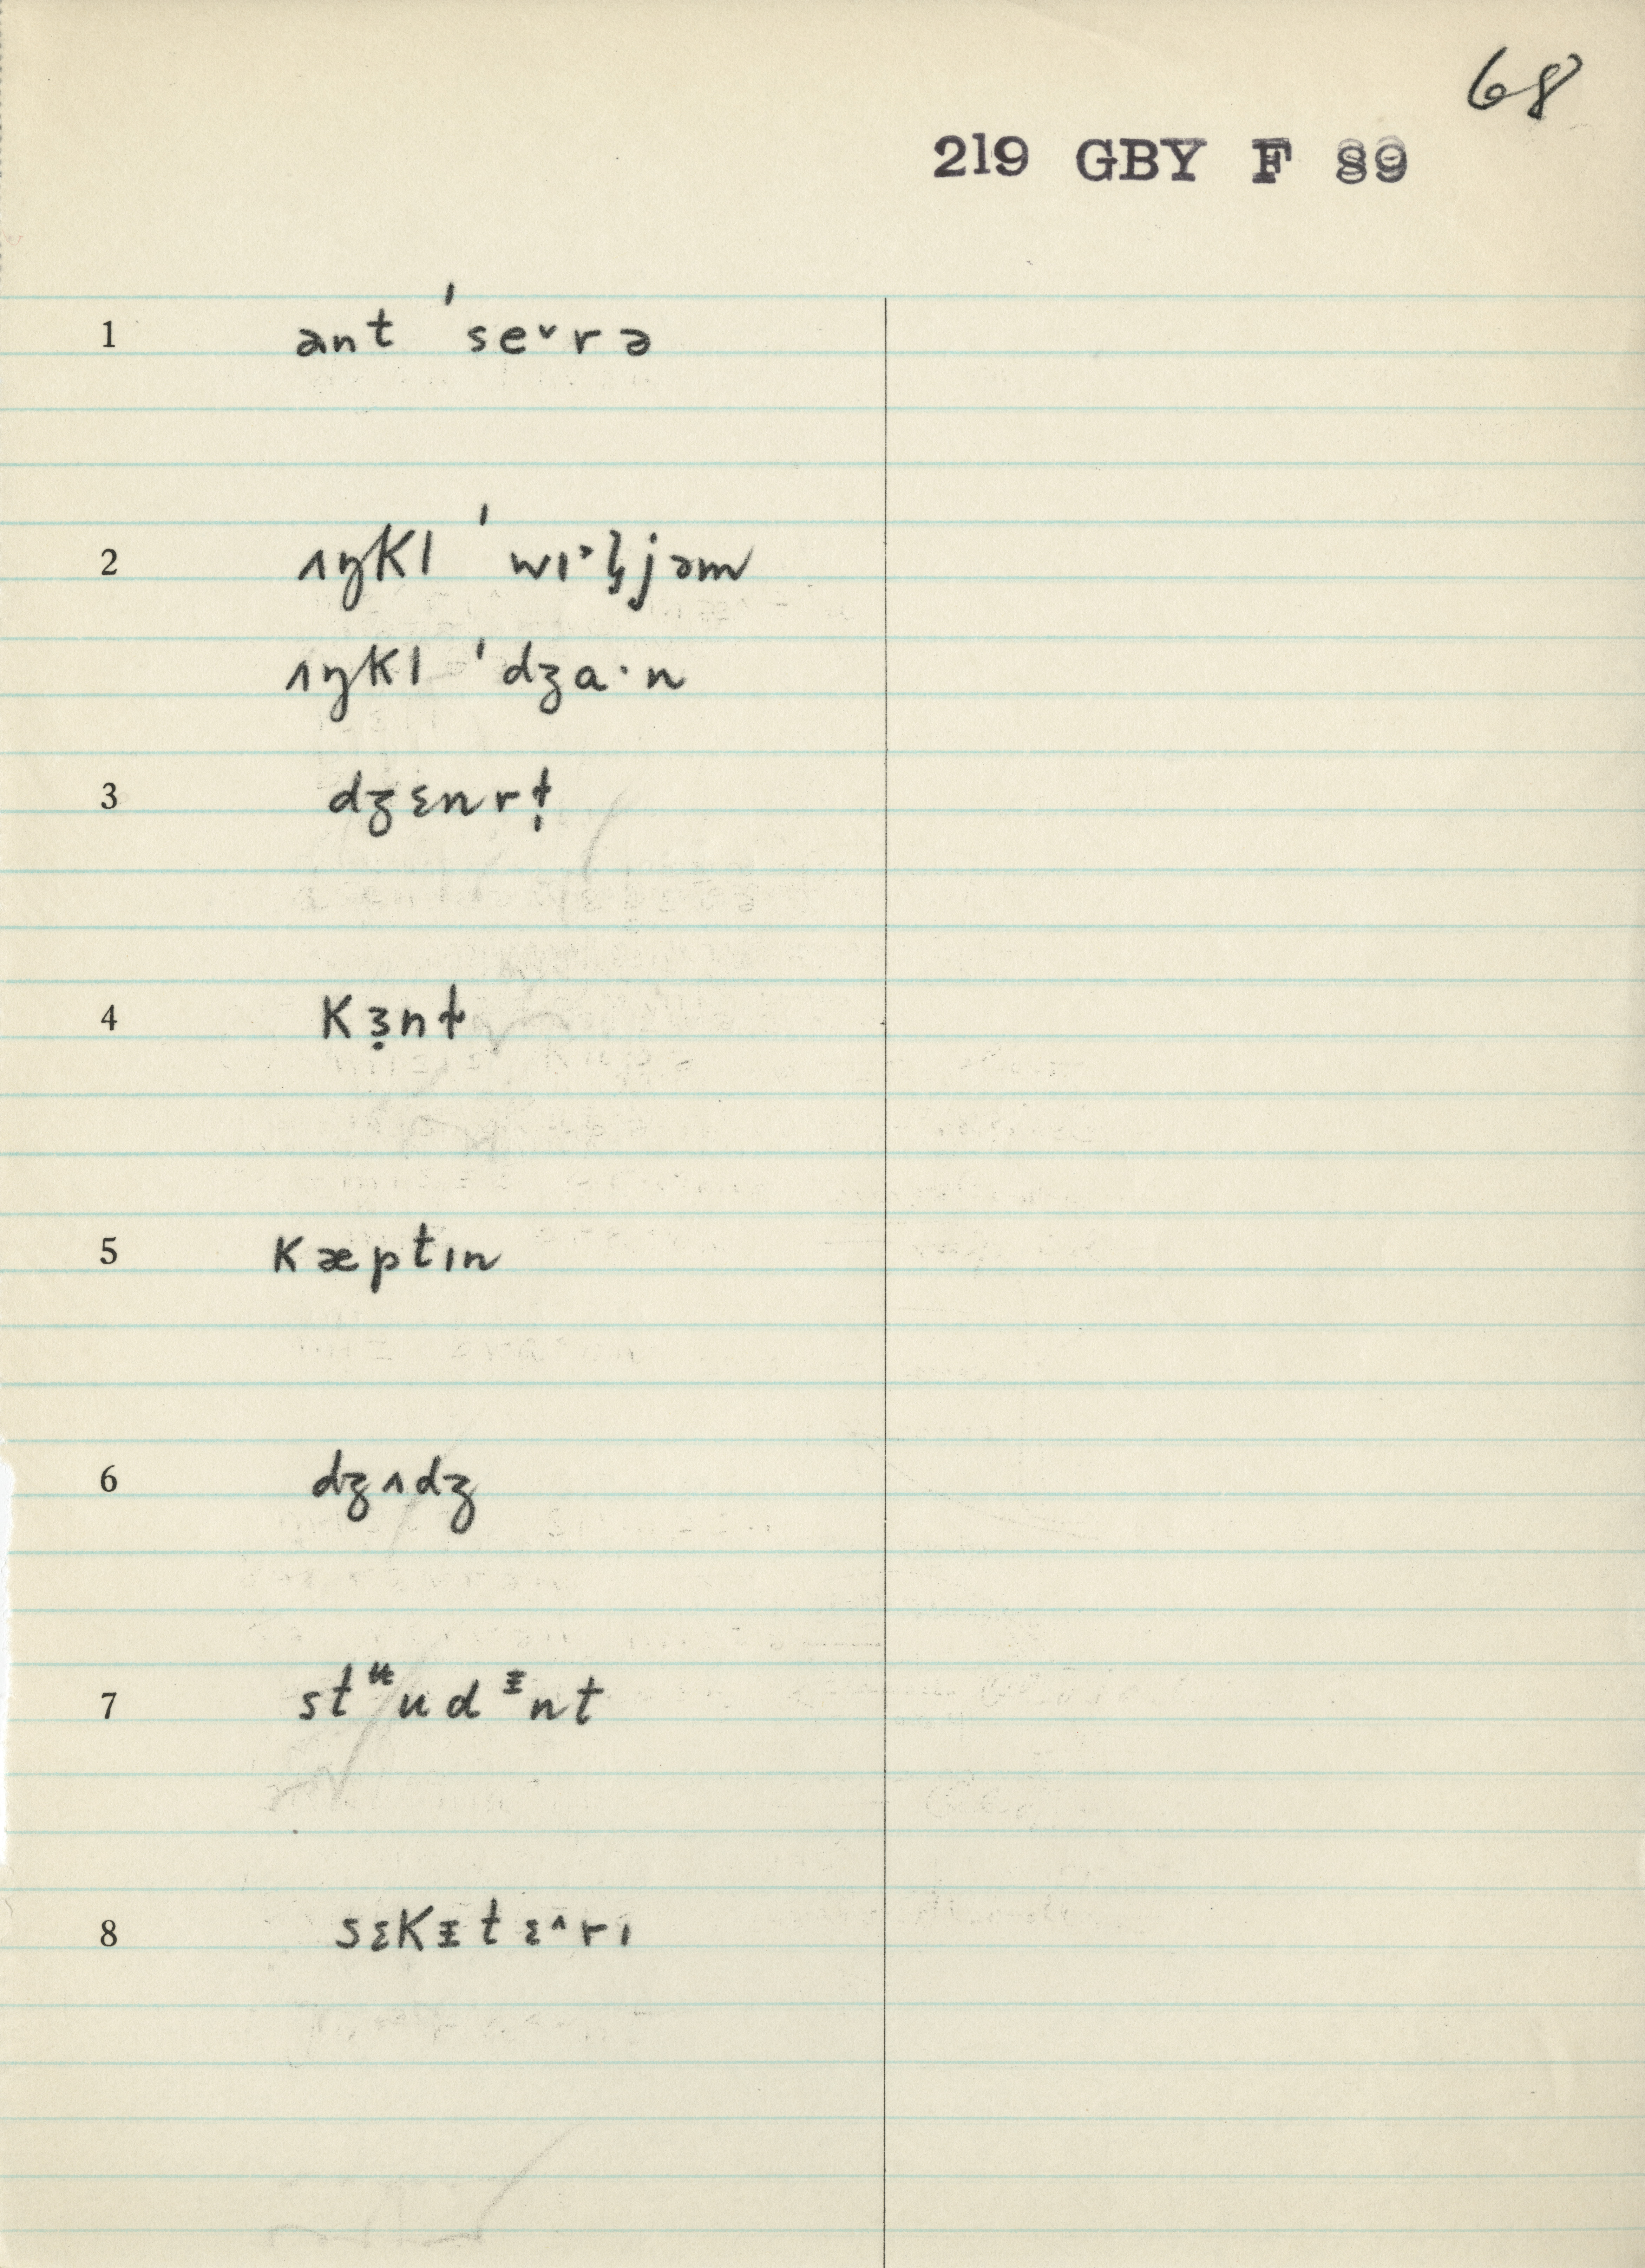 68
219 GBY F 89
1 ant ˈse˅rə
2 ʌŋkl̩ ˈwɪ˃l̡jəm
ʌŋkl ˈdʒa·n
3 dʒɛnrl̩
4 kɜ̣nɫ
5 kæptɪn
6 dʒʌdʒ
7 stᵘ̵udᵻnt
8 sɛkᵻtɛ˄rɪ